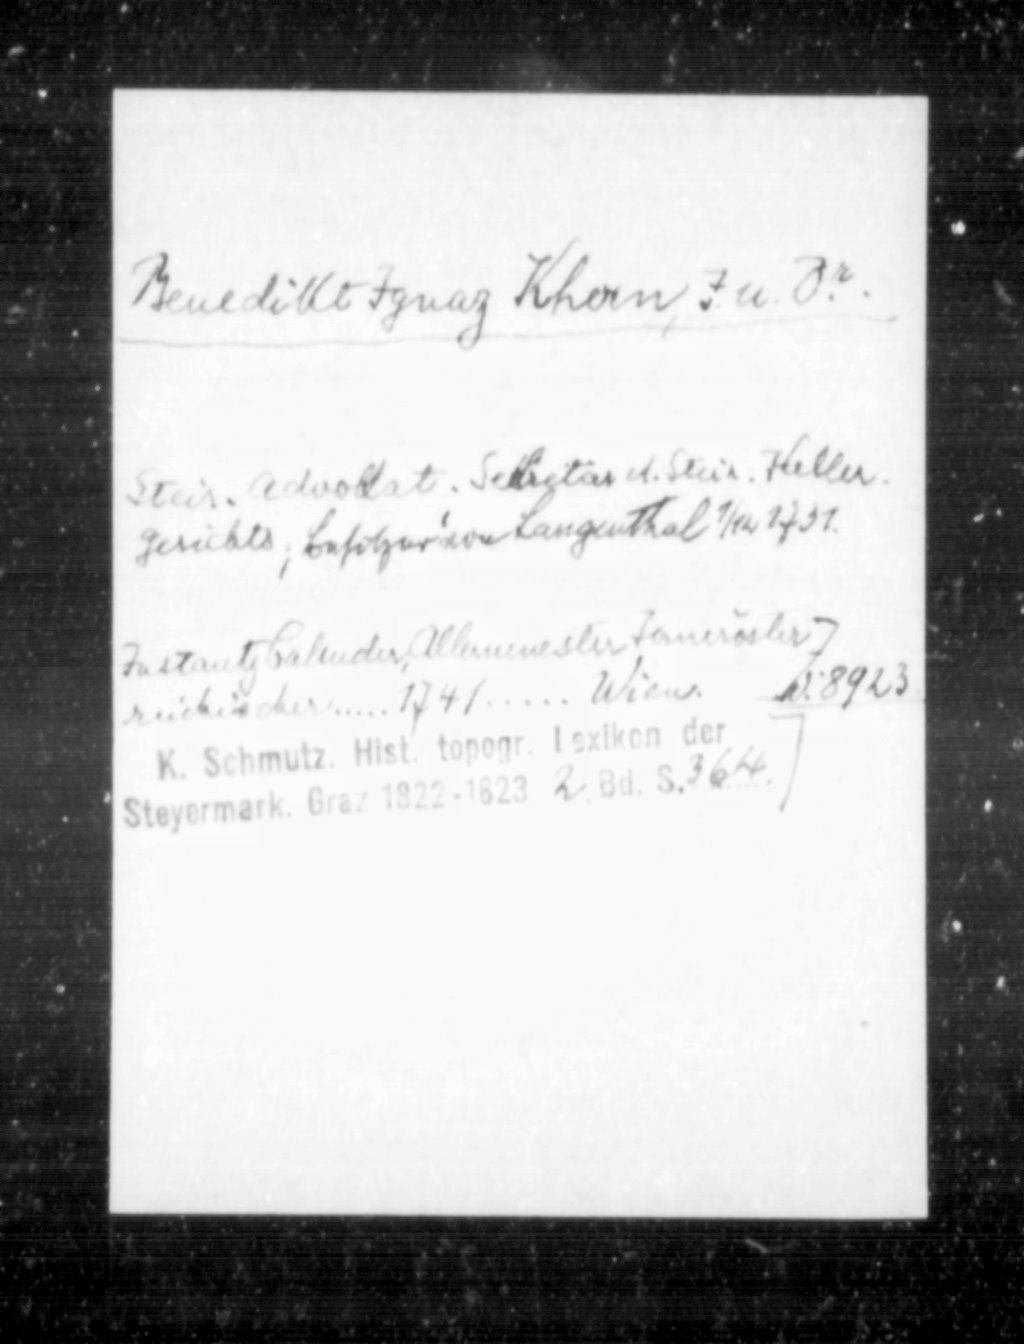 Benedikt Ignaz Khern, J. u. Dr.
Steir. Advokat. Sekretär d. Steir. Keller-
gerichts, Besitzer von Langenthal 1/12 1731.
Instantz Calender, Allerneuester Inneröster
reichischer ..... 1741 ...... Wien. W. 8923
K. Schmutz. Hist. topogr. Lexikon der
Steyermark. Graz 1822-1823 2. Bd. S. 364.